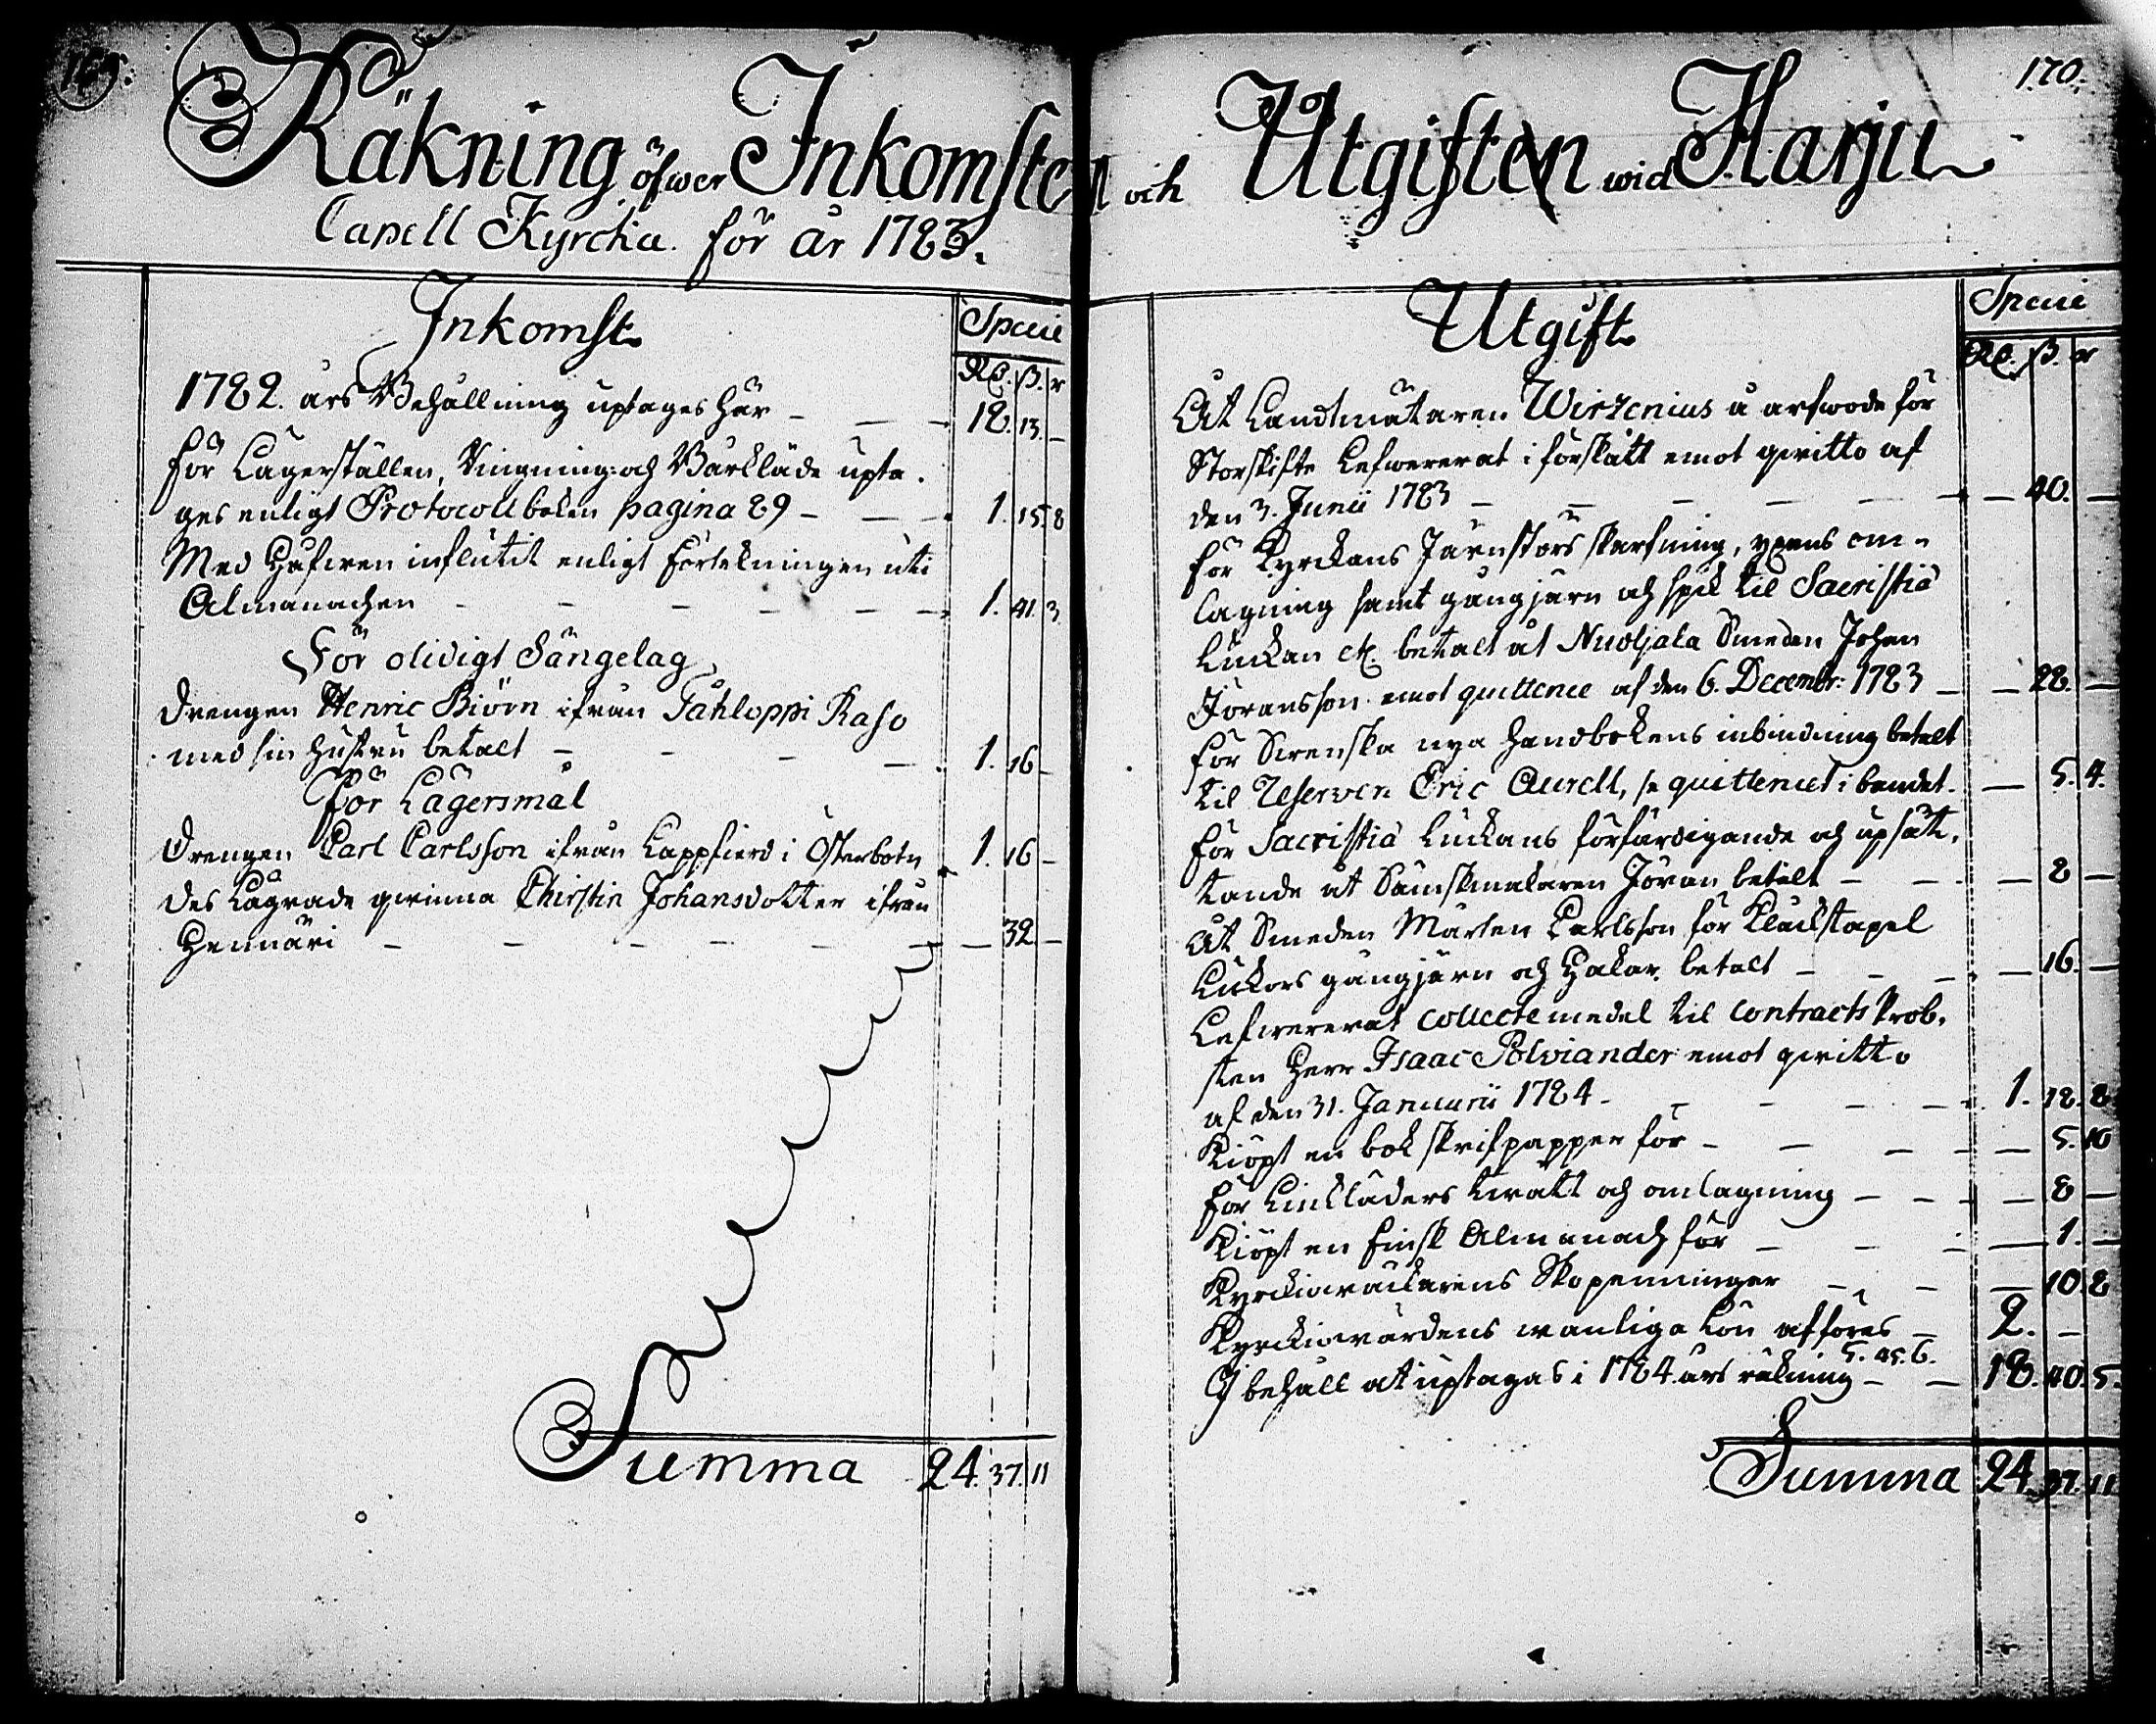 169.
Räkning öfwer Inkomsten och Utgiften wid Harju
Capell Kyrcka för år 1783.
Inkomst
Specie
Rd. ß. r
1782. års Behållning uptages här — 18. 13. —
för Lägerställen, Ringning och Bårkläde upta-
ges enligt Protocollboken pagina 29 — 1. 15. 8
Med Håfwen influtit enligt förtekningen uti
Almanachen — 1. 41. 3
För olidigt Sängelag
Drengen Henric Biörn ifrån Tahloppi Raso
med sin hustru betalt — 1. 16 —
För Lägersmål
Drengen Carl Carlsson ifrån Lappfierd i Österbotn 1. 16 —
Des Lägrade qwinna Chirstin Johansdotter ifrån
Hennäri — — 32 —
Summa 24. 37. 11
170.
Utgift
Specie
Rd. ß. r
Åt Landtmätaren Wirzenius å arfwode för
Storskifte Lefwererat i förskått emot qwitto af
den 3. Junii 1783 — — 40. —
för Kyrckans Järnstörs skarfning, yxens om-
lagning samt gångjärn och spik til Sacristiæ
Luckan etc. betalt åt Nuoljala Smeden Johan
Jöransson emot quittence af den 6. Decembr: 1783 — — 28. —
för Swenska nya Handbokens inbindning betalt
til Reserven Eric Aurell, se quittencet i bandet. — 5. 4.
för Sacristiæ Luckans förfärdigande och upsät-
tande åt Sämskmakaren Jöran betalt — — 8 —
Åt Smeden Mårten Carlsson för Kläckstapel
Luckors gångjärn och Hakar betalt — — 16. —
Lefwererat collecte medel til Contracts Prob-
sten Herr Isaac Polviander emot qwitto
af den 31. Januarii 1784 — 1. 18. 8
Kiöpt en bok skrifpapper för — — 5. 10
för Linkläders twätt och omlagning — — 8 —
Kiöpt en finsk Almanach för — — 1. —
Kyrckiowäcktarens Skopenningar — — 10. 8
Kyrckiowärdens wanliga Lön afföres — 2. —
5. 45. 6.
I behåll at uptagas i 1784 års räkning — 18. 40. 5.
Summa 24. 37. 11